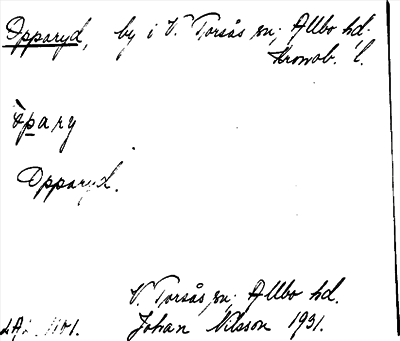 Opparyd, by i V. Torsås sn; Allbo hd.
Kronob. l.
òpary
Opparyd.
V. Torsås sn; Allbo hd.
Johan Nilsson 1931.